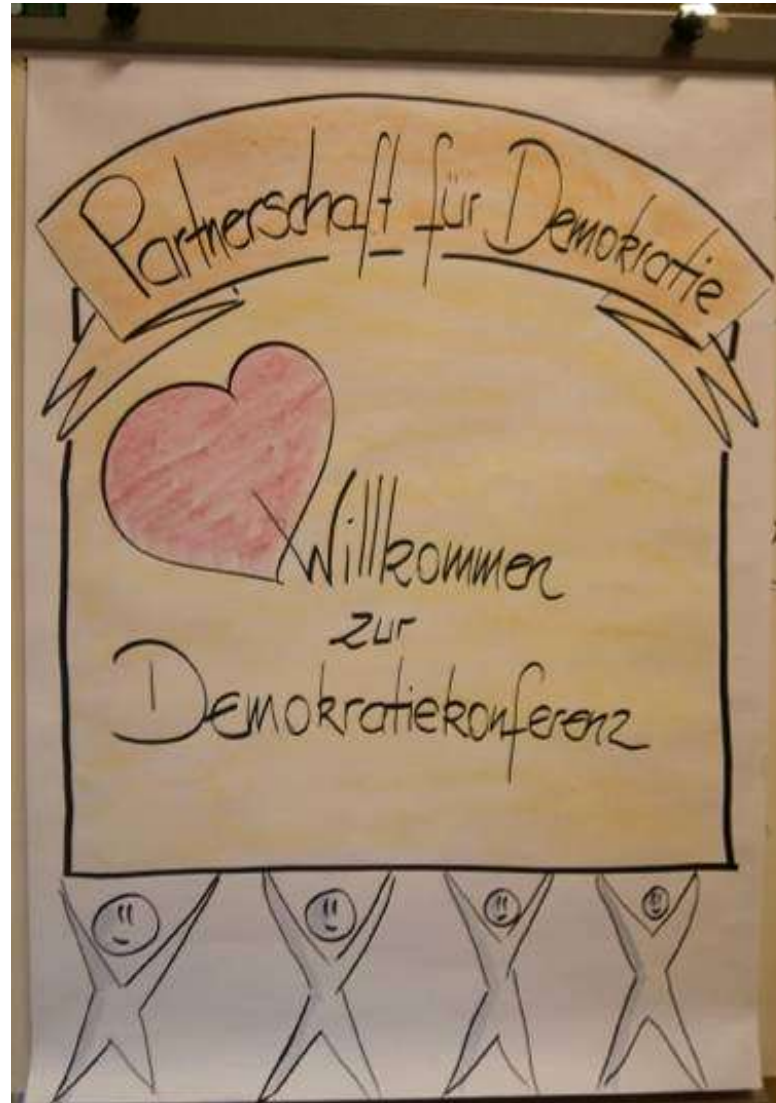 Partnerschaft für Demokratie
Willkommen
zur
Demokratiekonferenz